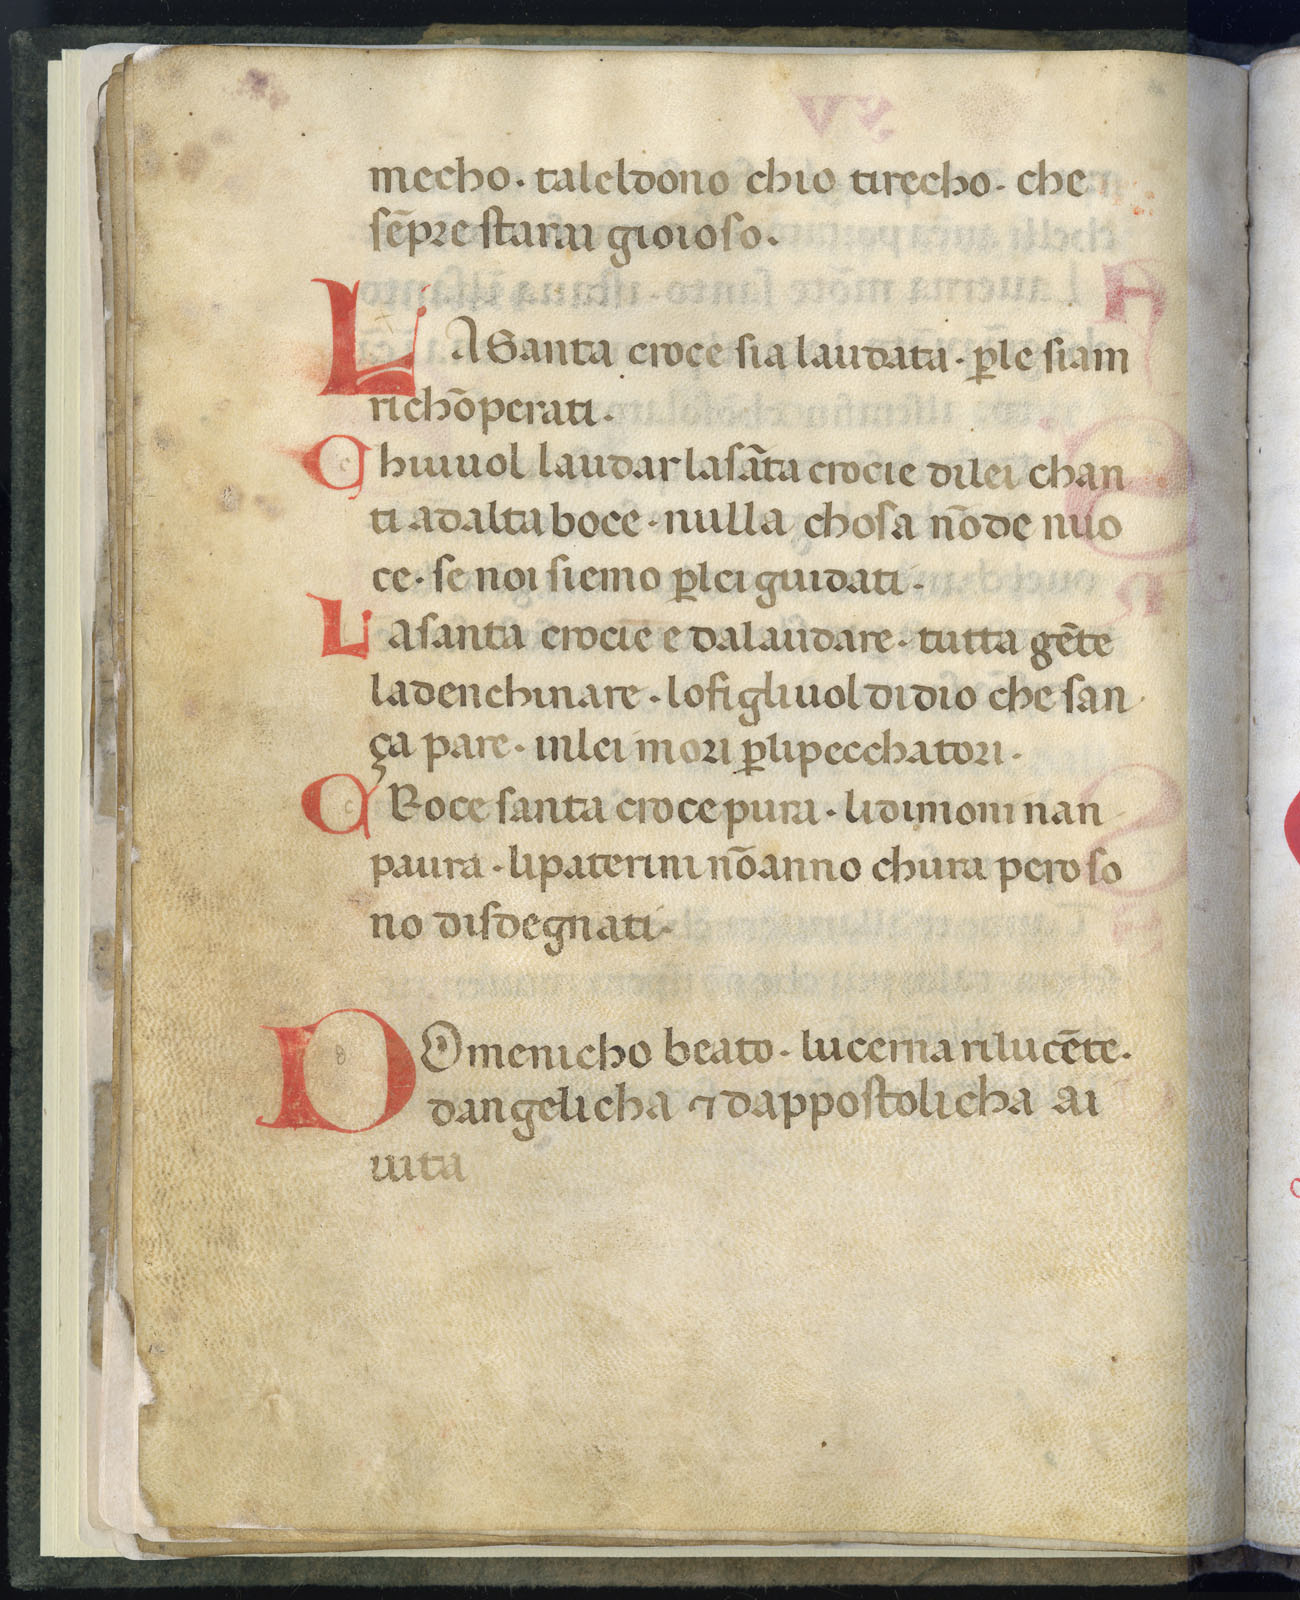 mecho · taleldono chio tirecho · che
sēpre starai gioioso ·
LA Santa croce sia laudata · ꝑ le siam
richōperati ·
Chiuuol laudar lasāta crocie dilei chan
ti adalta boce · nulla chosa nōde nuo
ce · se noi siemo ꝑlei guidati ·
Lasanta crocie e dalaudare · tutta gēte
ladenchinare · lofigliuol didio che san
ça pare · inlei mori ꝑlipecchatori ·
CRoce santa croce pura · lidimoni nan
paura · lipaterini nōanno chura pero so
no disdegnati ·
DOmenicho beato · lucerna rilucēte ·
dangelicha ⁊ dappostolicha ai
uita